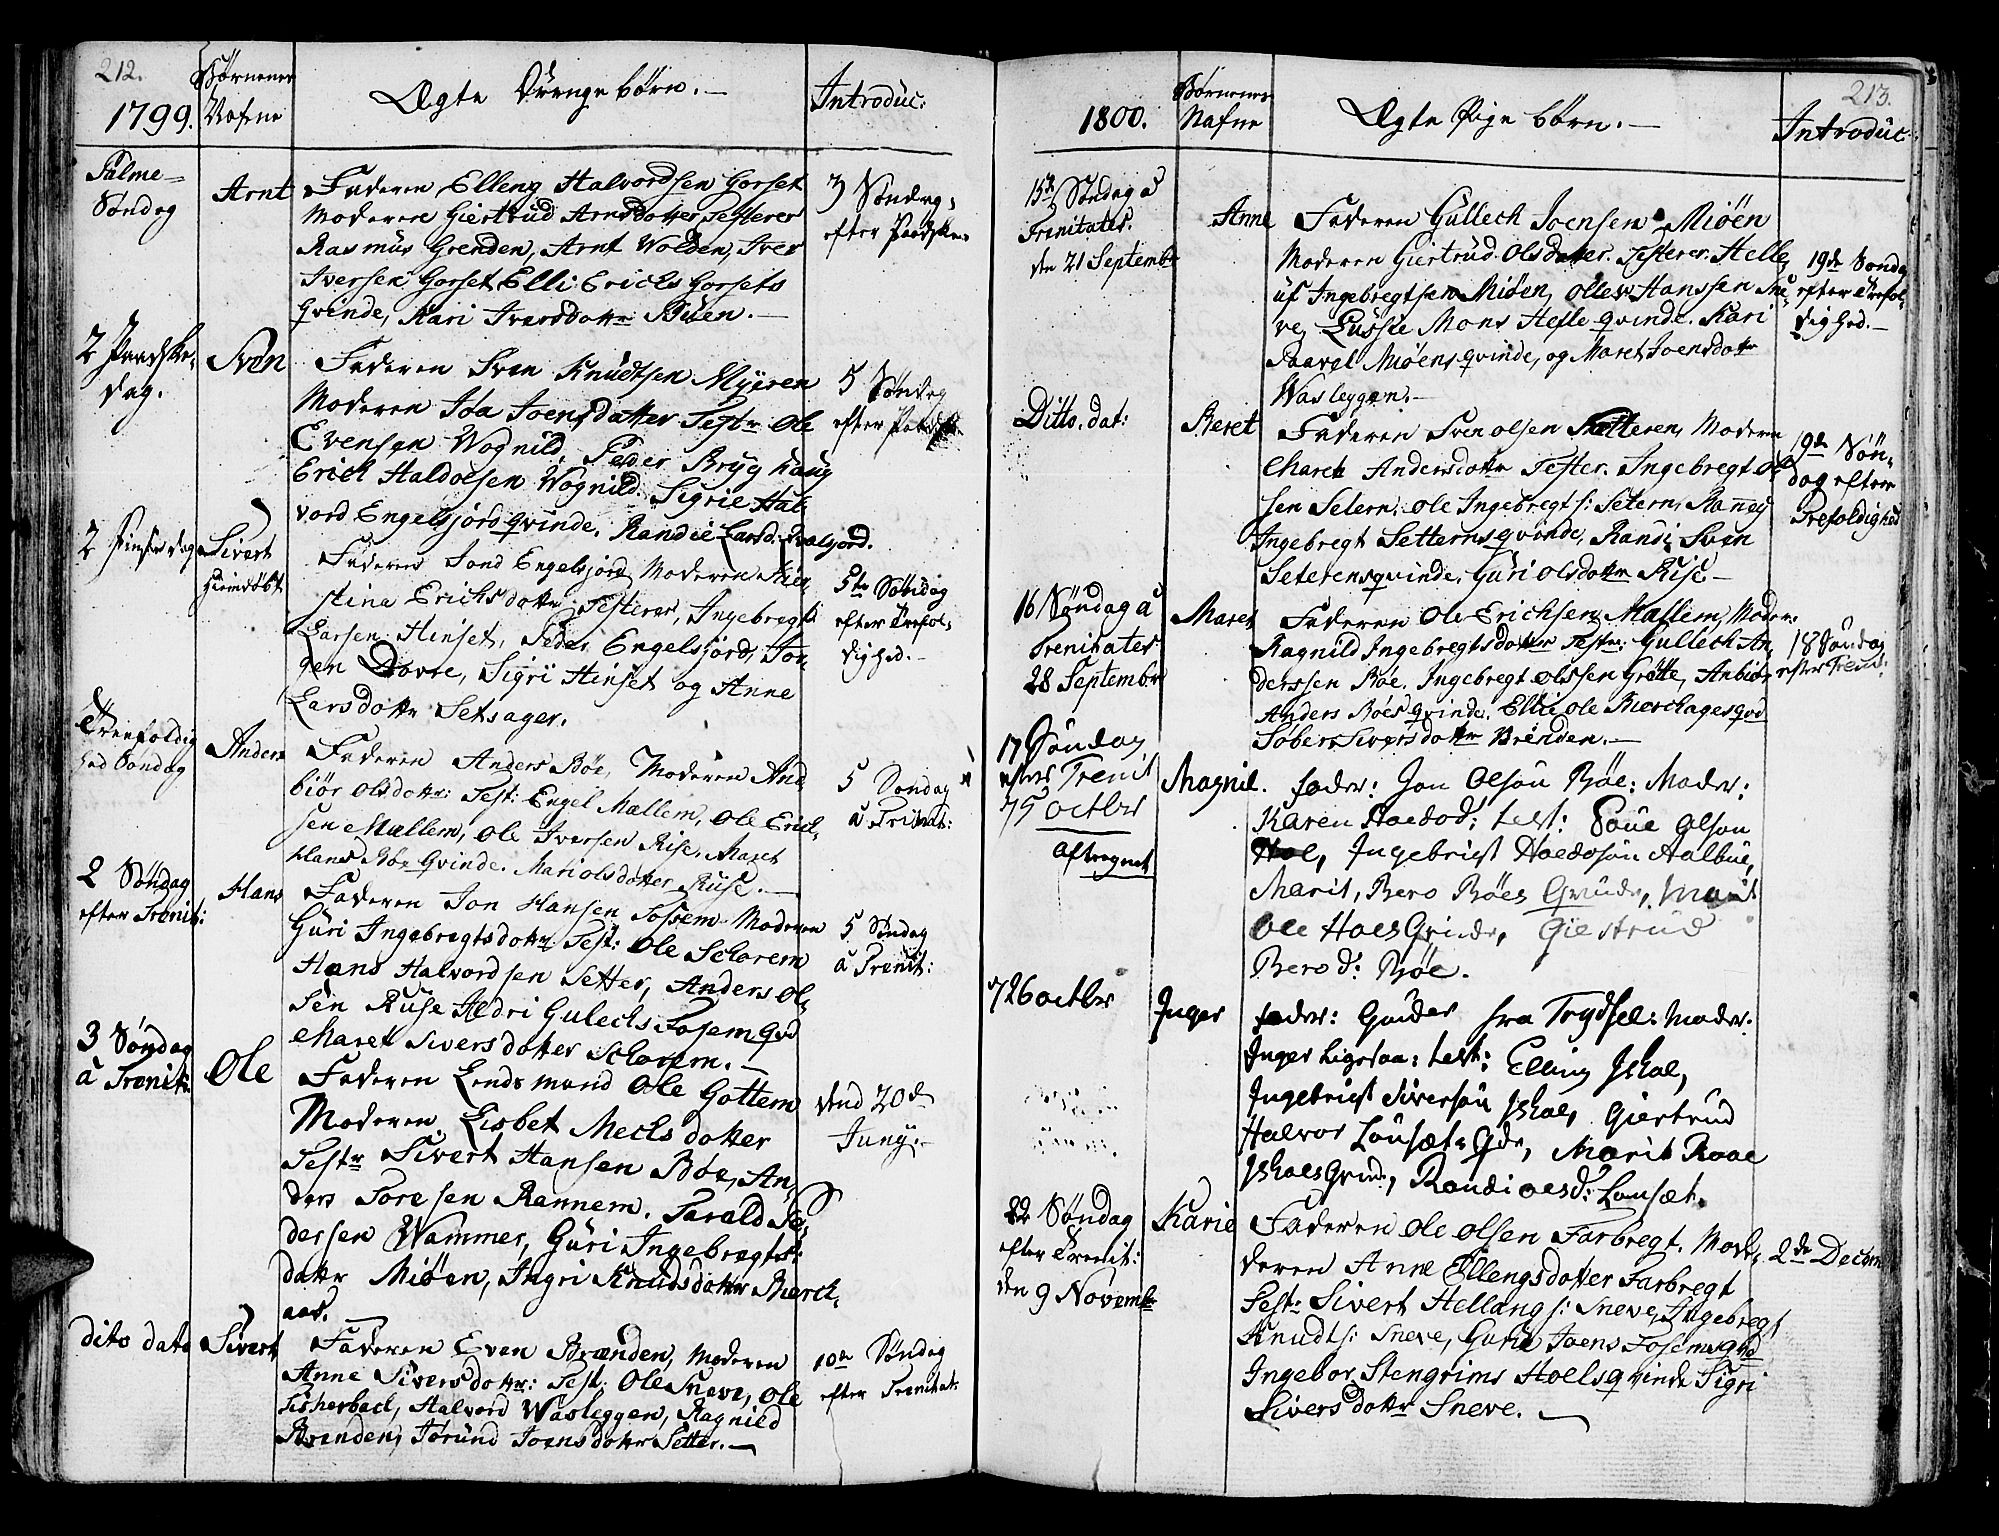 212.
1799.
Børnenes
Nafne
Ægte Drengebørn.
Introduc:
Palme=
Søndag
Arnt
Faderen Elleng Halvordsen Gorset
Moderen Giertrud Arnsdotter Testerer
Rasmus Grenden, Arnt Wolden, Iver
Iversen Gorset Elli Erichs Gorsets
qvinde, Kari Iversdottr Buen.
3 Søndag
efter Paaske
2 Paaske-
dag.
Sven
Faderen Sven Knudtsen Myren
Moderen Joa Joensdatter Testr Ole
Evensen Wognild, Peder Bryghaug
Erich Haldoesen Wognild. Sigrie Hal-
vord Engelsjords qvinde. Randie Larsd.
5 Søndag
efter
2 Pinsedag
Sivert
Hiemdøbt
Faderen Sond Engelsjord, Moderen Kier-
stina Erichsdottr Testerer, Ingebregt
Larsen Hinset, Peder Engelsjord, Tor-
gen Dovre, Sigri Hinset og Anne
Larsdottr Setsager.
5te Søndag
efter Trefol-
dighed.
Treefoldig
hed Søndag
Anders
Faderen Anders Bøe, Moderen And
biør Olsdottr: Test: Engel Mællem, Ole Erich-
sen Mællem, Ole Iversen Rise. Maret
Hans Bøe Qvinde. Mari olsdotter Ruse.
5 Søndag
a Trinit:
2 Søndag
efter Trenit:
Hans
Faderen Jon Hansen Tossem Moderen
Guri Ingebregtsdottr Test: Ole Schorem
Hans Halvordsen Setter, Anders Ol-
sen Ruse Ildri Gulechs Tosem qvd
Maret Siversdotter Schorem.
5 Søndag
a Trenit:
3 Søndag
a Trenit:
Ole
Faderen Lendsmand Ole Gottem
Moderen Lisbet Mechsdotter
Testr Sivert Hansen Bøe, An-
ders Toresen Rannem. Tarald Pe-
dersen Wammer, Guri Ingebregts-
dottr Miøen, Ingri Knudsdottr Merch-
aas.
dend 20de
Juny.
dito dato
Sivert
Faderen Even Brænden, Moderen
Anne Siversdottr: Test: Ole Sneve, Ole
Tischerbach, Halvord Wasleggen, Ragnild
Brænden, Jørund Joensdottr Setter.
10de Søndag
efter Trenitat:
213.
1800.
Børnenes
Nafne
Ægte Pige børn.
Introduc:
15de Søndag a
Trenitates.
den 21 Septembr
Anne
Faderen Gullech Joensen Miøen
Moderen Giertrud Olsdatter. Testerer: Helle
uf Ingebregtsen Miøen, Ole Hanssen Sne-
ve, Lussie Mons Hefle qvinde. Kari
Paavel Miøens qvinde, og Maret Joensdottr
Wasleggen.
19de Søndag
efter Trefol-
dighed.
Ditto. dat:
Beret
Faderen Sven olsen Sætteren, Moderen
Maret Andersdottr Tester. Ingebregt ol
sen Setern, Ole Ingebregts: Setern, Ranney
Ingebregt Setterns qvinde, Randi Sven
Seterens qvinde. Guri Olsdottr Rise
19de Søn-
dag efter
Trefoldighed
16 Søndag a
Trenitates
28 Septembr
Maret
Faderen Ole Erichsen Mallem, Moder:
Ragnild Ingebregtsdotter Testr: Gullech An-
derssen Bøe. Ingebregt Olssen Grøtte, Anbiør
Anders Bøes qvinde. Elli ole Merchages qvd
Sober Siversdottr Brenden.
18 Søndag
efter Trenit:
17 Søndag
efter Trenit
75 octbr
aftregnet
Magnil.
fader: Jon Olsøn Bøe: Moder:
Karen Haldod: test: Povl Olsøn
Hoel, Ingebrigt Haldosøn Aalbue,
Marit, Bero Bøes Qvinde, Marit
Ole Haes Qvinde, Giertrud
Bero d: Bøe.
726 octbr
Inger
fader: Guider fra Trydsel: Moder:
Inger Ligesaa: test: Elling
Ingebrigt Siversøn Giertrud
Halvor Lonsæt. Qde, Marit Roae
Qvind, Randi Olesd: Lonsæt.
22 Søndag
efter Trenit:
den 9 Novembr
Karie
Faderen Ole Olsen Farbregt. Mode-
deren Anne Ellengsdotter Farbregt
Test: Sivert Hellangs: Sneve, Ingebregt
Knudts: Sneve, Guri Joens Tosems qvd
Ingebor Stengrims Hoels qvinde Sigri
Siversdottr Sneve.
2de Decem